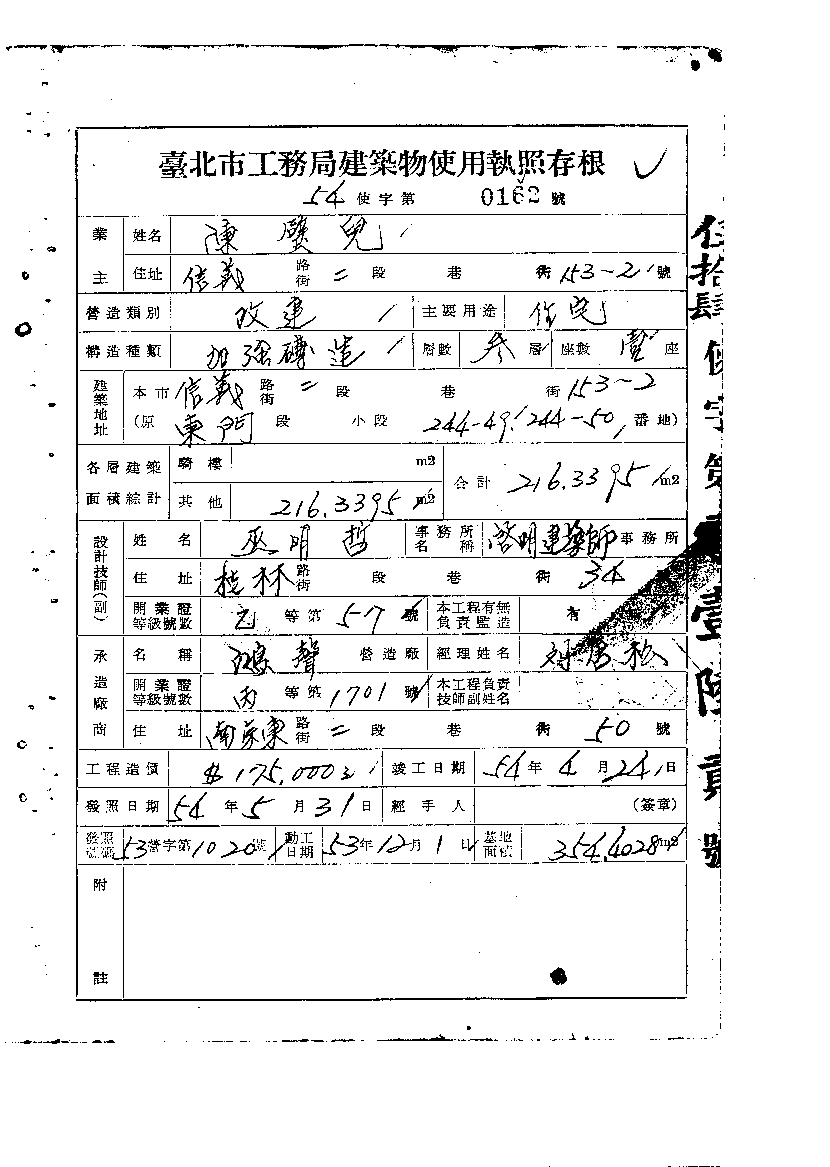 臺北市工務局建築物使用執照存根
54 使字第 0162 號
業主 姓名 陳 璧 兒
住址 信義 路街 二 段 巷 街 153-2 號
營造類別 改建 主要用途 住宅
構造種類 加強磚造 層數 叁 層 座數 壹 座
建築地址 本市 信義 路街 二 段 巷 街 153-2
(原 東門 段 小段 244-49, 244-50, 番地)
各層建築面積綜計 騎樓 m2 合計 216.3395 m2
其他 216.3395 m2
設計技師(副) 姓名 巫明哲 事務所名稱 啓明建築師 事務所
住址 桂林 路街 段 巷 街 34
開業證等級號數 元 等第 57 號 本工程有無負責監造 有
承造廠商 名稱 鴻聲 營造廠 經理姓名
開業證等級號數 丙 等第 1701 號 本工程負責技師副姓名
住址 南京東 路街 二 段 巷 街 50 號
工程造價 $175,000 竣工日期 54 年 4 月 24 日
發照日期 54 年 5 月 31 日 經手人 (簽章)
發照號碼 53 營字第 1020 號 動工日期 53 年 12 月 1 日 基地面積 354.4028 m2
附註
伍拾肆使字第 壹陸貳號